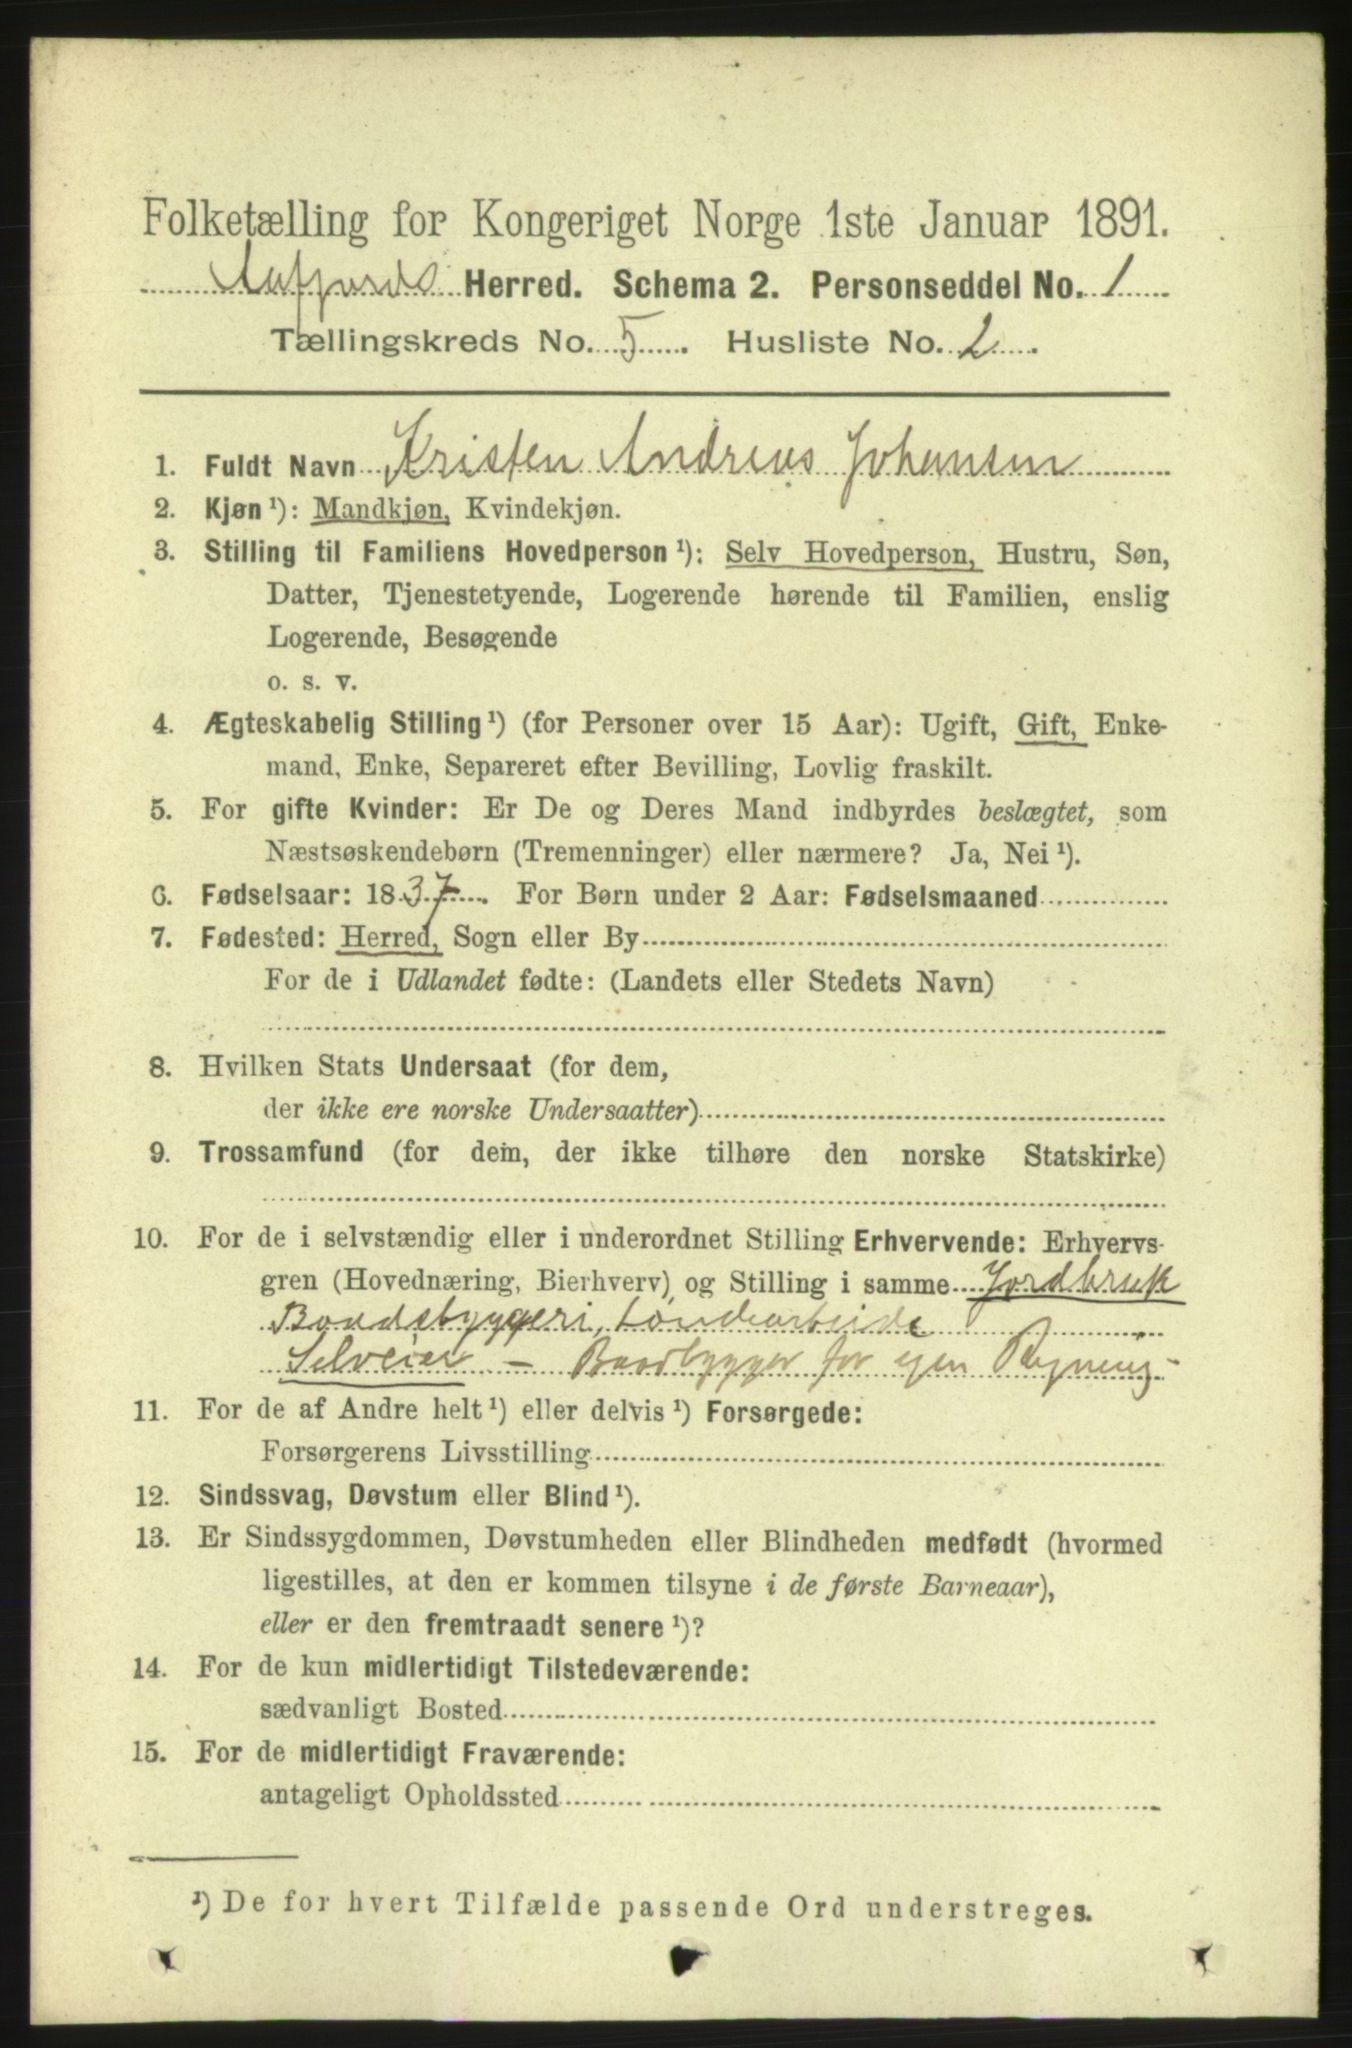 Folketælling for Kongeriget Norge 1ste Januar 1891.
Aafjords Herred. Schema 2. Personseddel No. 1
Tællingskreds No. 5. Husliste No. 2.
1. Fuldt Navn Kristen Andreas Johansen
2. Kjøn ¹): Mandkjøn, Kvindekjøn.
3. Stilling til Familiens Hovedperson ¹): Selv Hovedperson, Hustru, Søn,
Datter, Tjenestetyende, Logerende hørende til Familien, enslig
Logerende, Besøgende
o. s. v.
4. Ægteskabelig Stilling ¹) (for Personer over 15 Aar): Ugift, Gift, Enke-
mand, Enke, Separeret efter Bevilling, Lovlig fraskilt.
5. For gifte Kvinder: Er De og Deres Mand indbyrdes beslægtet, som
Næstsøskendebørn (Tremenninger) eller nærmere? Ja, Nei ¹).
6. Fødselsaar: 1837. For Børn under 2 Aar: Fødselsmaaned
7. Fødested: Herred, Sogn eller By
For de i Udlandet fødte: (Landets eller Stedets Navn)
8. Hvilken Stats Undersaat (for dem,
der ikke ere norske Undersaatter)
9. Trossamfund (for dem, der ikke tilhøre den norske Statskirke)
10. For de i selvstændig eller i underordnet Stilling Erhvervende: Erhvervs-
gren (Hovednæring, Bierhverv) og Stilling i samme Jordbruk
Baadsbyggeri, Londearbeide
Selveier – Baadbygger for egen Regning -
11. For de af Andre helt ¹) eller delvis ¹) Forsørgede:
Forsørgerens Livsstilling
12. Sindssvag, Døvstum eller Blind ¹).
13. Er Sindssygdommen, Døvstumheden eller Blindheden medfødt (hvormed
ligestilles, at den er kommen tilsyne i de første Barneaar),
eller er den fremtraadt senere ¹)?
14. For de kun midlertidigt Tilstedeværende:
sædvanligt Bosted
15. For de midlertidigt Fraværende:
antageligt Opholdssted
¹) De for hvert Tilfælde passende Ord understreges.